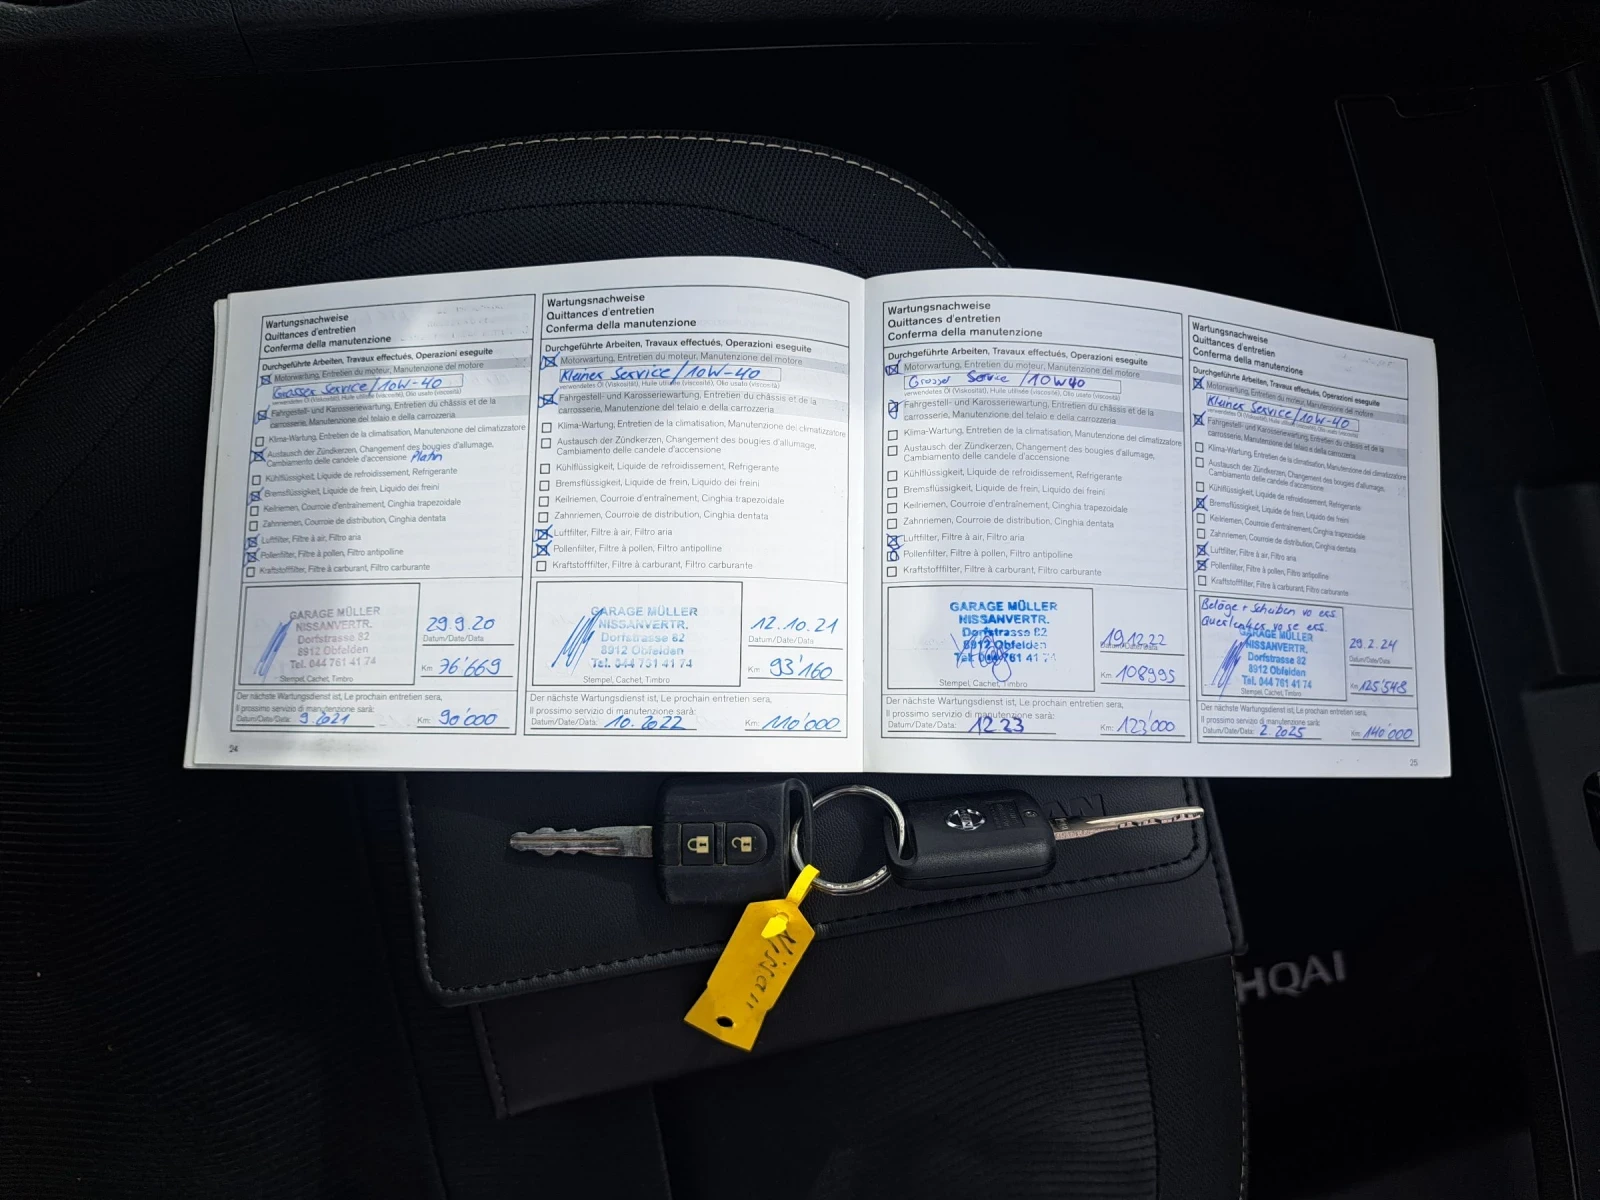 Wartungsnachweise
Quittances d'entretien
Conferma della manutenzione
Durchgeführte Arbeiten, Travaux effectués, Operazioni eseguite
Motorwartung, Entretien du moteur, Manutenzione del motore
Grosser Service/10W-40
verwendetes Öl (Viskosität), Huile utilisée (viscosité), Olio usato (viscosità)
Fahrgestell- und Karosseriewartung, Entretien du châssis et de la
carrosserie, Manutenzione del telaio e della carrozzeria
Klima-Wartung, Entretien de la climatisation, Manutenzione del climatizzatore
Austausch der Zündkerzen, Changement des bougies d'allumage,
Cambiamento delle candele d'accensione Platin
Kühlflüssigkeit, Liquide de refroidissement, Refrigerante
Bremsflüssigkeit, Liquide de frein, Liquido dei freini
Keilriemen, Courroie d'entraînement, Cinghia trapezoidale
Zahnriemen, Courroie de distribution, Cinghia dentata
Luftfilter, Filtre à air, Filtro aria
Pollenfilter, Filtre à pollen, Filtro antipolline
Kraftstofffilter, Filtre à carburant, Filtro carburante
GARAGE MÜLLER
NISSANVERTR.
Dorfstrasse 82
8912 Obfelden
Tel. 044 761 41 74
Stempel, Cachet, Timbro
29.9.20
Datum/Date/Data
Km 76'669
Der nächste Wartungsdienst ist, Le prochain entretien sera,
Il prossimo servizio di manutenzione sarà:
Datum/Date/Data: 9.2021 Km: 90'000
24
Wartungsnachweise
Quittances d'entretien
Conferma della manutenzione
Durchgeführte Arbeiten, Travaux effectués, Operazioni eseguite
Motorwartung, Entretien du moteur, Manutenzione del motore
Kleiner Service/10W-40
verwendetes Öl (Viskosität), Huile utilisée (viscosité), Olio usato (viscosità)
Fahrgestell- und Karosseriewartung, Entretien du châssis et de la
carrosserie, Manutenzione del telaio e della carrozzeria
Klima-Wartung, Entretien de la climatisation, Manutenzione del climatizzatore
Austausch der Zündkerzen, Changement des bougies d'allumage,
Cambiamento delle candele d'accensione
Kühlflüssigkeit, Liquide de refroidissement, Refrigerante
Bremsflüssigkeit, Liquide de frein, Liquido dei freini
Keilriemen, Courroie d'entraînement, Cinghia trapezoidale
Zahnriemen, Courroie de distribution, Cinghia dentata
Luftfilter, Filtre à air, Filtro aria
Pollenfilter, Filtre à pollen, Filtro antipolline
Kraftstofffilter, Filtre à carburant, Filtro carburante
GARAGE MÜLLER
NISSANVERTR.
Dorfstrasse 82
8912 Obfelden
Tel. 044 761 41 74
Stempel, Cachet, Timbro
12.10.21
Datum/Date/Data
Km 93'160
Der nächste Wartungsdienst ist, Le prochain entretien sera,
Il prossimo servizio di manutenzione sarà:
Datum/Date/Data: 10.2022 Km: 110'000
Wartungsnachweise
Quittances d'entretien
Conferma della manutenzione
Durchgeführte Arbeiten, Travaux effectués, Operazioni eseguite
Motorwartung, Entretien du moteur, Manutenzione del motore
Grosser Service /10W40
verwendetes Öl (Viskosität), Huile utilisée (viscosité), Olio usato (viscosità)
Fahrgestell- und Karosseriewartung, Entretien du châssis et de la
carrosserie, Manutenzione del telaio e della carrozzeria
Klima-Wartung, Entretien de la climatisation, Manutenzione del climatizzatore
Austausch der Zündkerzen, Changement des bougies d'allumage,
Cambiamento delle candele d'accensione
Kühlflüssigkeit, Liquide de refroidissement, Refrigerante
Bremsflüssigkeit, Liquide de frein, Liquido dei freini
Keilriemen, Courroie d'entraînement, Cinghia trapezoidale
Zahnriemen, Courroie de distribution, Cinghia dentata
Luftfilter, Filtre à air, Filtro aria
Pollenfilter, Filtre à pollen, Filtro antipolline
Kraftstofffilter, Filtre à carburant, Filtro carburante
GARAGE MÜLLER
NISSANVERTR.
Dorfstrasse 82
8912 Obfelden
Tel. 044 761 41 74
Stempel, Cachet, Timbro
19.12.22
Datum/Date/Data
Km 108995
Der nächste Wartungsdienst ist, Le prochain entretien sera,
Il prossimo servizio di manutenzione sarà:
Datum/Date/Data: 12 23 Km: 123'000
Wartungsnachweise
Quittances d'entretien
Conferma della manutenzione
Durchgeführte Arbeiten, Travaux effectués, Operazioni eseguite
Motorwartung, Entretien du moteur, Manutenzione del motore
Kleiner Service/10W-40
verwendetes Öl (Viskosität), Huile utilisée (viscosité), Olio usato (viscosità)
Fahrgestell- und Karosseriewartung, Entretien du châssis et de la
carrosserie, Manutenzione del telaio e della carrozzeria
Klima-Wartung, Entretien de la climatisation, Manutenzione del climatizzatore
Austausch der Zündkerzen, Changement des bougies d'allumage,
Cambiamento delle candele d'accensione
Kühlflüssigkeit, Liquide de refroidissement, Refrigerante
Bremsflüssigkeit, Liquide de frein, Liquido dei freini
Keilriemen, Courroie d'entraînement, Cinghia trapezoidale
Zahnriemen, Courroie de distribution, Cinghia dentata
Luftfilter, Filtre à air, Filtro aria
Pollenfilter, Filtre à pollen, Filtro antipolline
Kraftstofffilter, Filtre à carburant, Filtro carburante
Beläge + Scheiben vo ers.
Querlenker vo se ers.
GARAGE MÜLLER
NISSANVERTR.
Dorfstrasse 82
8912 Obfelden
Tel. 044 761 41 74
Stempel, Cachet, Timbro
29.2.24
Datum/Date/Data
Km 125'548
Der nächste Wartungsdienst ist, Le prochain entretien sera,
Il prossimo servizio di manutenzione sarà:
Datum/Date/Data: 2.2025 Km: 140'000
25
NISSAN
Nissan
HQAI